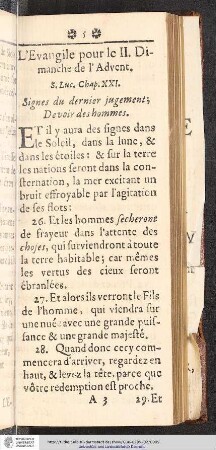 5
L'Evangile pour le II. Di-
manche de l'Advent.
S. Luc. Chap. XXI.
Signes du dernier jugement;
Devoir des hommes.
ET il y aura des signes dans
le Soleil, dans la lune, &
dans les étoiles: & sur la terre
les nations seront dans la con-
sternation, la mer excitant un
bruit effroyable par l'agitation
de ses flots:
26. Et les hommes secheront
de frayeur dans l'attente des
choses, qui surviendront à toute
la terre habitable; car mêmes
les vertus des cieux seront
ébranlées.
27. Et alors ils verront le Fils
de l'homme, qui viendra sur
une nuée avec une grande puis-
sance & une grande majesté.
28. Quand donc cecy com-
mencera d'arriver, regardez en
haut, & levez la tête, parce que
vôtre redemption est proche.
A 3 29. Et